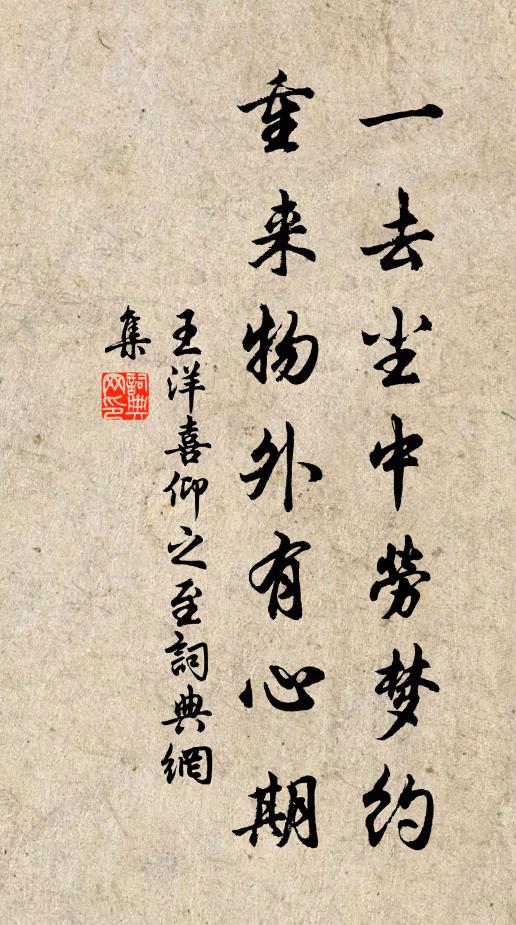 一去尘中劳梦约
重来物外有心期
王洋喜仰之至詞典網
集
詞典
网印